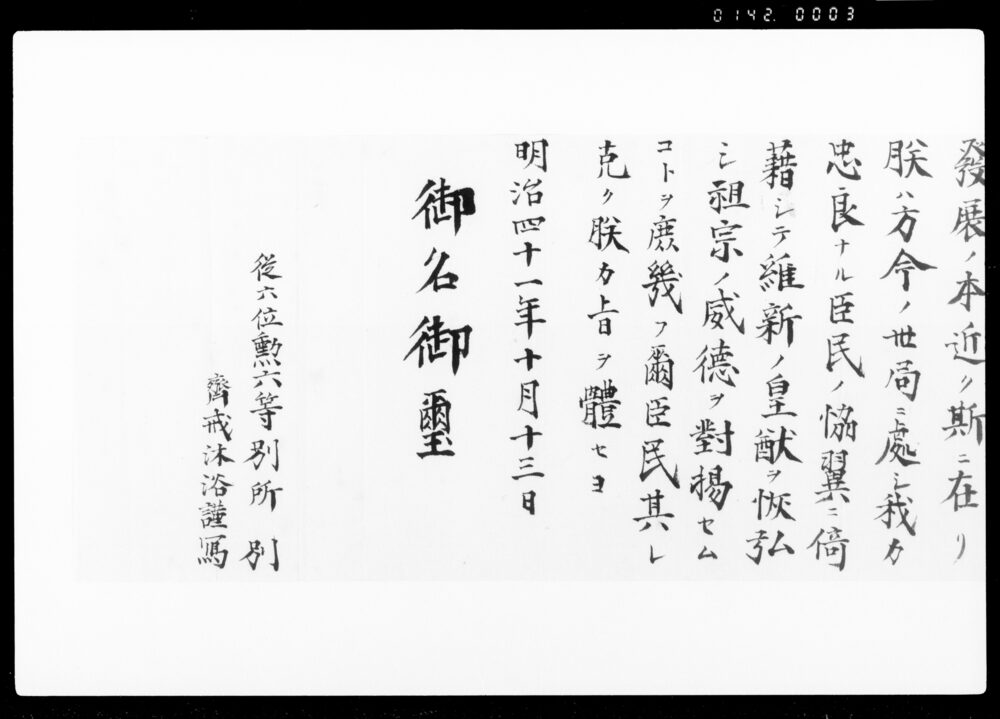 0142. 0003
發展ノ本近ク斯ニ在リ
朕ハ方今ノ世局ニ處シ我カ
忠良ナル臣民ノ恊翼ニ倚
藉シテ維新ノ皇猷ヲ恢弘
シ祖宗ノ威德ヲ對揚セム
コトヲ庶幾フ爾臣民其レ
克ク朕カ旨ヲ體セヨ
明治四十一年十月十三日
御名御璽
從六位勲六等別所別
齊戒沐浴謹寫